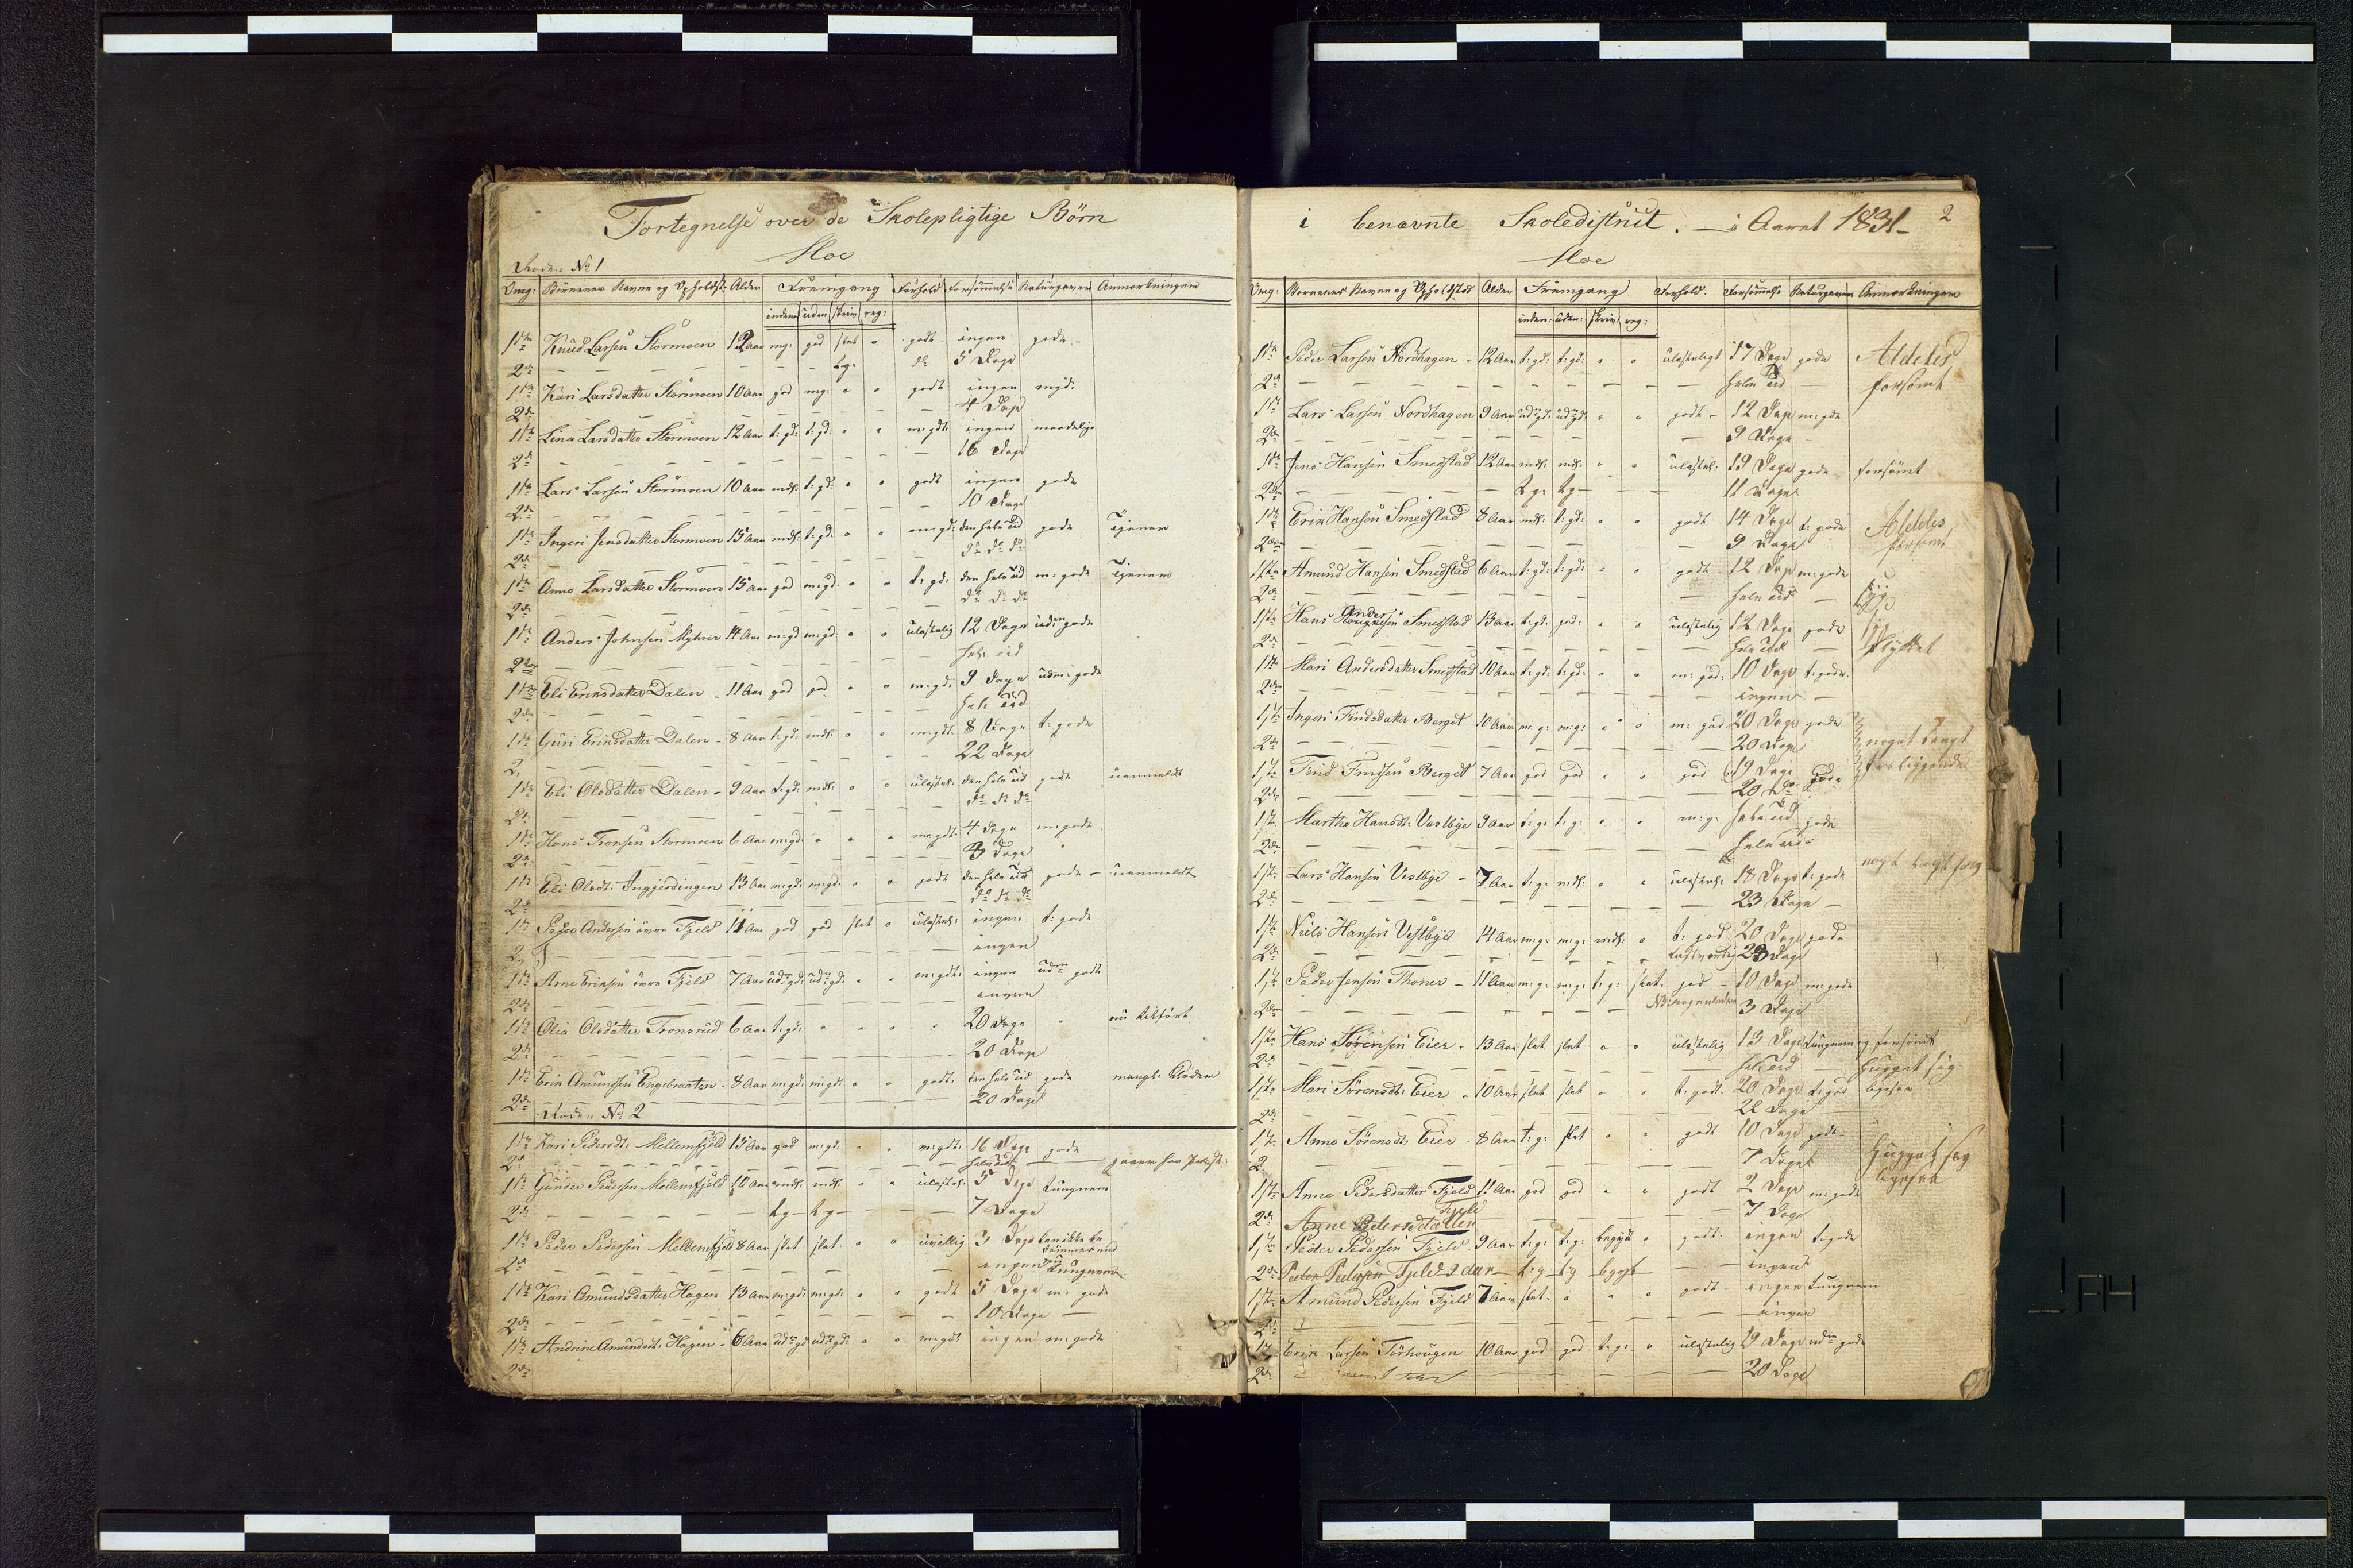 Fortegnelse over de Skolepligtige Börn
Moe
Roden No 1
Omg: Börnenes Navne og Opholdst: Alder Fremgang Forhold Forsömmelse Naturgaver Anmærkninger
inden uden skriv reg:
1ste Knud Larsen Stormoen 12 Aar mg: god slet " godt ingen gode
2den — — — bg: do 5 Dage
1ste Kari Larsdatter Stormoen 10 Aar god mg: " " godt ingen mgd:
2den — — — 4 Dage
1ste Lina Larsdatter Stormoen 12 Aar t: gd: t: gd: " " m: gdt: ingen maadelige
2den — — — 16 Dage
1ste Lars Larsen Stormoen 10 Aar mdl: t: gd: " " godt ingen gode
2den — — — 10 Dage
1ste Ingeri Jensdatter Stormoen 15 Aar mdl: t: gd: " " m: gd: den hele Tid gode Tjener
2den — — — do do do
1ste Anne Larsdatter Stormoen 15 Aar god m: gd: " " t: gd: den hele Tid m: gode Tjener
2den — — — do do do
1ste Anders Johnsen Myhrer 14 Aar m: gd m: gd: " " ulastelig 12 Dage udm gode
2den — — — hele tid
1ste Eli Eriksdatter Dalen 11 Aar god god " " m: gd: 9 Dage udm: gode
2den — — — hele Tid
1ste Guri Eriksdatter Dalen 8 Aar t: gd: mdl: " " m: gdt: 8 Dage t: gode
2 — — — 22 Dage
1ste Eli Olsdatter Dalen 9 Aar t: gd: mdl: " " ulastel: den hele Tid gode uanmeldt
2den — — — do do do
1ste Hans Tronsen Stormoen 6 Aar m: gd: " " " m: gdt: 4 Dage m: gode
2den — — — 3 Dage
1ste Eli Olsdt: Ingjerdingen 13 Aar m: gd: m: gd: " " godt den hele Tid gode — uanmeldt
2den — — — do do do
1ste Peder Andersen övre Fjeld 11 Aar god god slet " ulastel: ingen t: gode
2 — — — ingen
1ste Arne Eriksen övre Fjeld 7 Aar udm: gd: udm: gd: " " m: gdt: ingen udm gode
2den — — — ingen
1ste Olia Olsdatter Tronsrud 6 Aar t: gd: " " " " 20 Dage " nu tilfört
2den — — — 20 Dage
1ste Erik Amundsen Engebraaten 8 Aar m: gd: m: gd: " " godt: den hele Tid gode mangl: Klæder
2den — — — 20 Dage
Roden No 2
1ste Kari Pedersdt: Mellemfjeld 15 Aar god m: gd: " " m: gdt: 16 Dage gode
2den — — — hele Tid — gaaer for Præst:
1ste Gunder Pedersen Mellemfjeld 10 Aar mdl: mdl: " " ulastel: 5 Dage tungnem
2den — — — bg — bg — 7 Dage
1ste Peder Pedersen Mellemfjeld 8 Aar slet slet " " uvillig 3 Dage
2den — — — ingen tungnem
1ste Kari Amundsdatter Hagen 13 Aar m: gd: m: gd: " " godt 5 Dage m: gode
2den — — — 10 Dage —
1ste Andrine Amundsdt: Hagen 6 Aar udm: gd: udm: gd: " " m: gdt: ingen m: gode
2den
i benævnte Skoledistrict. — i Aaret 1831 — 2
Moe
Omg: Börnenes Navne og Opholdsted Alder Fremgang Forhold. Forsömmelse Naturgaver Anmærkninger
inden: uden: skriv: reg:
1ste Peder Larsen Nordhagen 12 Aar t: gd: t: gd: " " ulasteligt 17 Dage gode Aldeles
2den — — — hele Tid — forsömt
1ste Lars Larsen Nordhagen 9 Aar udm: gd: udm: gd: " " godt 12 Dage m: gode
2den — — — 9 Dage
1ste Jens Hansen Smedstad 12 Aar mdl: mdl: " " ulastel: 19 Dage gode forsömt
2den — — — bg: bg — 11 Dage
1ste Erik Hansen Smedstad 8 Aar mdl: t: gd: " " godt 14 Dage t: gode Aldeles
2den — — — 9 Dage forsömt
1ste Amund Hansen Smedstad 6 Aar t: gd: t: gd: " " godt 12 Dage m: gode
2den — — — hele tid — syg
1ste Hans Andersen Smedstad 13 Aar t: gd: god: " " ulastelig 12 Dage gode
2den — — — hele Tid — flyttet
1ste Mari Andersdatter Smedstad 10 Aar t: gd: t: gd: " " m: god: 10 Dage t: gode
2den — — — ingen —
1ste Ingeri Findsdatter Berget 10 Aar m: g: m: g: " " m: god 20 Dage gode
2den — — — 20 Dage noget langt
1ste Find Findsen Berget 7 Aar god god " " god 19 Dage fraliggende
2den — — — 20 Do gode
1ste Marthe Hansdt: Vestbye 9 Aar t: g: t: g: " " m: g: hele tid gode
2den — — — hele tid
1ste Lars Hansen Vestbye 7 Aar t: g: mdl: " " ulastel: 18 Dage t: gode
2den — — — 23 Dage —
1ste Niels Hansen Vestbye 14 Aar m: g: m: g: mdl: " t: god 20 Dage gode
2den — — — 23 Dage
1ste Peder Jensen Thoner 11 Aar m: g: m: g: t: g: slet: god 10 Dage m: gode
2den — — — 3 Dage
1ste Hans Sörensen Eier 13 Aar slet slet " " ulastelig 13 Dage tungnem og forsömt
2den — — — hele tid — hugget sig
1ste Mari Sörensdt: Eier 10 Aar slet slet " " t: godt 20 Dage t: god
2den — — — 22 Dage
1ste Anne Sörensdt: Eier 8 Aar t: g: slet " " godt 10 Dage gode
2 — — — 7 Dage hugget sig
1ste Anne Pedersdatter Fjeld 11 Aar god god " " godt 2 Dage m: gode
2den Anne Pedersdatter Fjeld — — — 7 Dage
1ste Peder Pedersen Fjeld 9 Aar t: g: t: g: begynt " godt ingen t: gode
2den Peder Pedersen Fjeld 2den — t: g — t: g — begynt — ingen
1ste Amund Pedersen Fjeld 7 Aar slet " " " godt ingen tungnem
2den — — — ingen
1ste Erik Larsen Törhougen 10 Aar god god t: g: " ulastelig 19 Dage udm gode
2den — — — 20 Dage
FH